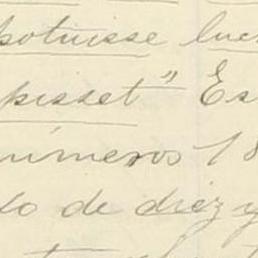 potuisse luc
pisset" Es
números 18
do de diez y